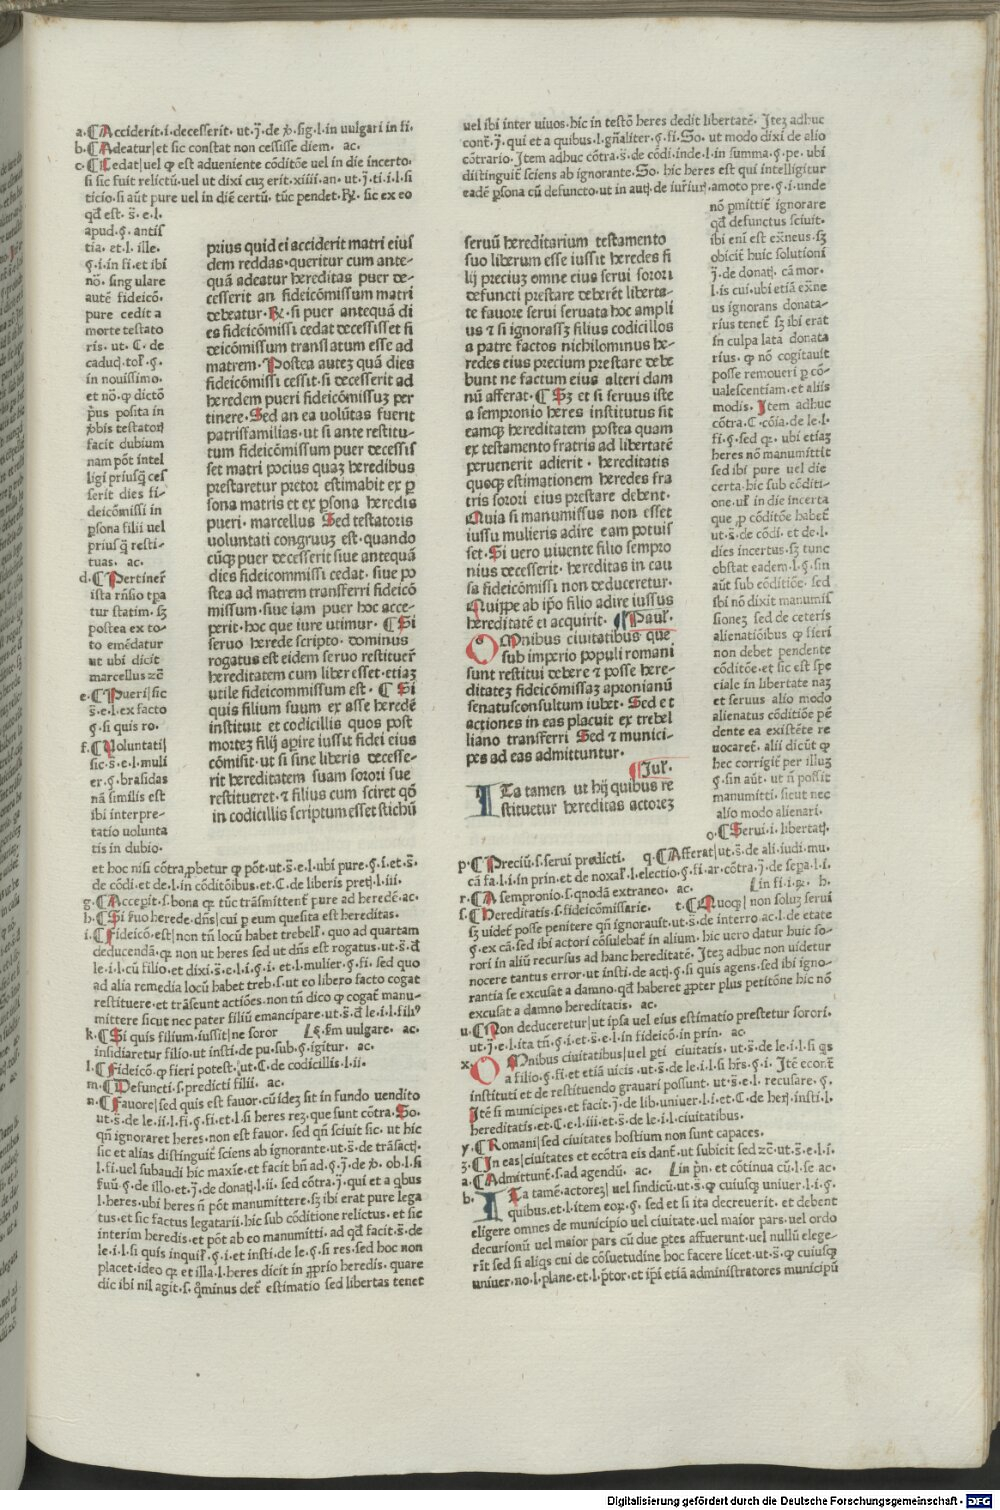 a.⁋Acciderit.i.decesserit. ut.ȷ̄.de ꝟ.sig.l.in uulgari in fi.
b.⁋Adeatur|et sic constat non cessisse diem. ac.
c.⁋Cedat|uel ꝙ est adueniente cōditōne uel in die incerto.
si sic fuit relictū.uel ut dixi cuꝫ erit.xiiii.an. ut.ȷ̄.ti.l.si
ticio.si aūt pure uel in diē certū. tūc pendet.℞. sic ex eo
qđ est. s̄.e.l.
apud.ꝗ. antis
tia. et.l. ille.
ꝗ.i.in fi.et ibi
nō. sing ulare
autē fideicō.
pure cedit a
morte testato
ris. ut. C. de
caduc̄.tol. ꝗ.
in nouissimo.
et nō.ꝙ dictō
p̄us posita in
ꝟbis testatoꝝ
facit dubium
nam pōt intel
ligi priusq̄ ces
serit dies fi-
deicōmissi in
ꝑsona filii uel
priusq̄ resti-
tuas. ac.
d.⁋Pertiner̄
ista rn̄sio tꝑa
tur statim. sꝫ
postea ex to-
to emēdatur
ut ubi dicit
marcellus ⁊c̄
e.⁋Pueri|sic
s̄.e.l.ex facto
ꝗ.si quis ro.
f.⁋Uoluntati|
sic.s̄.e.l.muli
er.ꝗ.brasidas
nā similis est
ibi interpre-
tatio uolunta
tis in dubio.
prius quid ei acciderit matri eius
dem reddas.queritur cum ante-
quā adeatur hereditas puer de-
cesserit an fideicōmissum matri
debeatur.℞.si puer antequā di
es fideicōmissi cedat decessisset fi
deicōmissum translatum esse ad
matrem.Postea auteꝫ quā dies
fideicōmissi cessit.si decesserit ad
heredem pueri fideicōmissuꝫ per
tinere.Sed an ea uolūtas fuerit
patrisfamilias.ut si ante restitu-
tum fideicōmissum puer decessis
set matri pocius quaꝫ heredibus
prestaretur pretor estimabit ex ꝑ
sona matris et ex ꝑsona heredis
pueri. marcellus Sed testatoris
uoluntati congruuꝫ est.quando
cūqꝫ puer decesserit siue antequā
dies fideicommissi cedat. siue po
stea ad matrem transferri fideicō
missum.siue iam puer hoc acce-
perit.hoc que iure utimur. ⁋Si
seruo herede scripto. dominus
rogatus est eidem seruo restituer̄
hereditatem cum liber esset.etiaꝫ
utile fideicommissum est. ⁋ Si
quis filium suum ex asse heredē
instituit et codicillis quos post
morteꝫ filij apire iussit fidei eius
cōmisit.ut si sine liberis decesse-
rit hereditatem suam sorori sue
restitueret.⁊ filius cum sciret qđ
in codicillis scriptum esset stichū
et hoc nisi cōtra ꝓbetur ꝙ pōt.ut.s̄.e.l.ubi pure.ꝗ.i.et.s̄.
de cōdi.et de.l.in cōditōibus.et.C.de liberis pretj.l.iii.
g.⁋Accepit.s.bona ꝙ tūc trāsmittent̄ pure ad heredē.ac.
h.⁋Si ẜuo herede.dn̄s|cui ꝑ eum quesita est hereditas.
i.⁋Fideicō.est|non tn̄ locū habet trebell. quo ad quartam
deducendā.ꝙ non ut heres sed ut dn̄s est rogatus.ut.s̄.đ
le.i.l.cū filio.et dixi.s̄.e.l.i.ꝗ.i. et.l.mulier.ꝗ.fi. sed quo
ad alia remedia locū habet treb.s.ut eo libero facto cogat
restituere.et trāseunt actiōes.non tn̄ dico ꝙ cogat̄ manu-
mittere sicut nec pater filiū emancipare.ut.s̄.đ le.i.l.filiꝰ
k.⁋Si quis filium.iussit|ne soror
insidiaretur filio.ut insti.de pu.sub.ꝗ.igitur. ac.
l.⁋Fideicō.ꝙ fieri potest.ut.C.de codicillis.l.ii.
m.⁋Defuncti.s.predicti filii. ac.
n.⁋Fauore|sed quis est fauor.cū ideꝫ sit in fundo uendito
ut.s̄.de le.ii.l.fi.ꝗ.fi.et.l.si heres reꝫ.que sunt cōtra.So.
qn̄ ignoraret heres.non est fauor. sed qn̄ sciuit sic. ut hic
sic et alias distinguit̄ sciens ab ignorante.ut.s̄.de trāsactj.
l.fi.uel subaudi hic maxīe.et facit bn̄ ad.ꝗ.ȷ̄.de ꝟ.ob.l.si
ẜuū.ꝗ.de illo.et.ȷ̄.de donatj.l.ii. sed cōtra.ȷ̄.qui et a qbus
l.heres.ubi heres n̄ pōt manumittere.sꝫ ibi erat pure lega
tus.et sic factus legatarii.hic sub cōditione relictus.et sic
interim heredis.et pōt ab eo manumitti. ad qđ facit.s̄.de
le.i.l.si quis inquil.ꝗ.i.et insti.de le.ꝗ.si res.sed hoc non
placet.ideo qꝛ et illa.l.heres dicit in ꝓprio heredis. quare
dic ibi nil agit.s.qminus det̄ estimatio sed libertas tenet
uel ibi inter uiuos.hic in testō heres dedit libertatē. Iteꝫ adhuc
cont̄.ȷ̄.qui et a quibus.l.gn̄aliter.ꝗ.fi.So. ut modo dixi de alio
cōtrario.Item adhuc cōtra.s̄.de cōdi.inde.l.in summa.ꝗ.pe. ubi
distinguit̄ sciens ab ignorante.So. hic heres est qui intelligitur
eadē ꝑsona cū defuncto.ut in autj.de iur̄iur̄.amoto pre.ꝗ.i.unde
nō pmittit̄ ignorare
qđ defunctus sciuit.
ibi eni est exn̄eus.sꝫ
obicit̄ huic solutioni
ȷ̄.de donatj. cā mor.
l.is cui.ubi etiā exn̄e
us ignorans donata-
rius tenet̄ sꝫ ibi erat
in culpa lata donata
rius. ꝙ nō cogitauit
posse remoueri ꝑ cō-
ualescentiam.et aliis
modis. Item adhuc
cōtra.C.cōia.de le.l.
fi.ꝗ.sed qꝛ. ubi etiaꝫ
heres nō manumittit
sed ibi pure uel die
certa.hic sub cōditi-
one.ul in die incerta
que ꝓ cōditōe habet̄
ut.s̄.de cōdi. et de.l.
dies incertus.sꝫ tunc
obstat eadem.l.ꝗ.sin
aūt sub cōditiōe. sed
ibi nō dixit manumis
sioneꝫ sed de ceteris
alienatiōibus ꝙ fieri
non debet pendente
cōditōe.et sic est spe
ciale in libertate naꝫ
et seruus alio modo
alienatus cōditiōe pē
dente ea existēte re
uocaret̄. alii dicūt ꝙ
hec corrigit̄ per illuꝫ
ꝗ.sin aūt. ut n̄ possit
manumitti.sicut nec
alio modo alienari.
o.⁋Serui.i.libertatj.
seruū hereditarium testamento
suo liberum esse iussit heredes fi
lij preciuꝫ omne eius serui sorori
defuncti prestare deberēt liberta-
te fauore serui seruata hoc ampli
us ⁊ si ignorassꝫ filius codicillos
a patre factos nichilominus he-
redes eius precium prestare debe
bunt ne factum eius alteri dam
nū afferat. ⁋Sꝫ et si seruus iste
a sempronio heres institutus sit
eamqꝫ hereditatem postea quam
ex testamento fratris ad libertatē
peruenerit adierit. hereditatis
quoqꝫ estimationem heredes fra
tris sorori eius prestare debent.
Quia si manumissus non esset
iussu mulieris adire eam potuis
set.Si uero uiuente filio sempro
nius decesserit. hereditas in cau
sa fideicōmissi non deduceretur.
Quippe ab ip̄o filio adire iussus
hereditatē ei acquirit. ⁋Paul.
OMnibus ciuitatibus que
sub imperio populi romani
sunt restitui debere ⁊ posse here-
ditateꝫ fideicōmissaꝫ apronianū
senatusconsultum iubet. Sed et
actiones in eas placuit ex trebel
liano transferri Sed ⁊ munici-
pes ad eas admittuntur.
⁋Iul.
ITa tamen ut hij quibus re
stituetur hereditas actoreꝫ
p.⁋Preciū.s.serui predicti. q.⁋Afferat|ut.s̄.de ali.iudi.mu.
cā fa.l.i.in prin.et de noxal.l.electio.ꝗ.fi.ar.cōtra.ȷ̄.de sepa.l.i.
r.⁋A sempronio.s.qnōdā extraneo. ac. ⌊in fi.i.ꝶ. h.
s.⁋Hereditatis.s.fideicōmissarie. t.⁋Quoqꝫ|non soluꝫ serui
sꝫ uidet̄ posse penitere qn̄ ignorauit.ut.s̄.de interro.ac.l.de etate
ꝗ.ex cā.sed ibi actori cōsulebat̄ in alium.hic uero datur huic so-
rori in aliū recursus ad hanc hereditatē.Iteꝫ adhuc non uidetur
nocere tantus error.ut insti.de actj.ꝗ.si quis agens.sed ibi igno-
rantia se excusat a damno.qđ haberet ꝓpter plus petitōne hic nō
excusat a damno hereditatis. ac.
u.⁋Non deduceretur|ut ipsa uel eius estimatio prestetur sorori.
ut.ȷ̄.e.l.ita tn̄.ꝗ.i.et.s̄.e.l.in fideicō.in prin. ac.
x. OMnibus ciuitatibus|uel ꝑti ciuitatis. ut.s̄.de le.i.l.si qs
a filio.ꝗ.fi.et etiā uicis .ut.s̄.de le.i.l.si hr̄s.ꝗ.i. Itē ecōr.t̄
instituti et de restituendo grauari possunt. ut.s̄.e.l. recusare.ꝗ.
Itē si municipes.et facit.ȷ̄.de lib.uniuer.l.i.et.C.de herj.insti.l.
hereditatis.et.C.e.l.iii.et.s̄.de le.i.l.ciuitatibus.
y.⁋Romani|sed ciuitates hostium non sunt capaces.
ꝫ.⁋In eas|ciuitates et ecōtra eis dant̄.ut subicit sed ⁊c̄.ut.s̄.e.l.i.
a.⁋Admittunt̄.s.ad agendū. ac. ⌊in pn̄.et cōtinua cū.l.se ac.
b. ITa tamē.actoreꝫ| uel sindicū.ut.s̄. ꝙ cuiusqꝫ uniuer.l.i.ꝗ.
quibus.et.l.item eoꝝ.ꝗ. sed et si ita decreuerit. et debent
eligere omnes de municipio uel ciuitate.uel maior pars.uel ordo
decurionū uel maior pars cū due ꝑtes affuerunt.uel nullū elege-
rīt sed si aliqs cui de cōsuetudine hoc facere licet.ut.s̄.ꝙ cuiusqꝫ
uniuer.no.l.plane.et.l.p̄tor.et ip̄i etiā administratores municipū
Digitalisierung gefördert durch die Deutsche Forschungsgemeinschaft - DFG